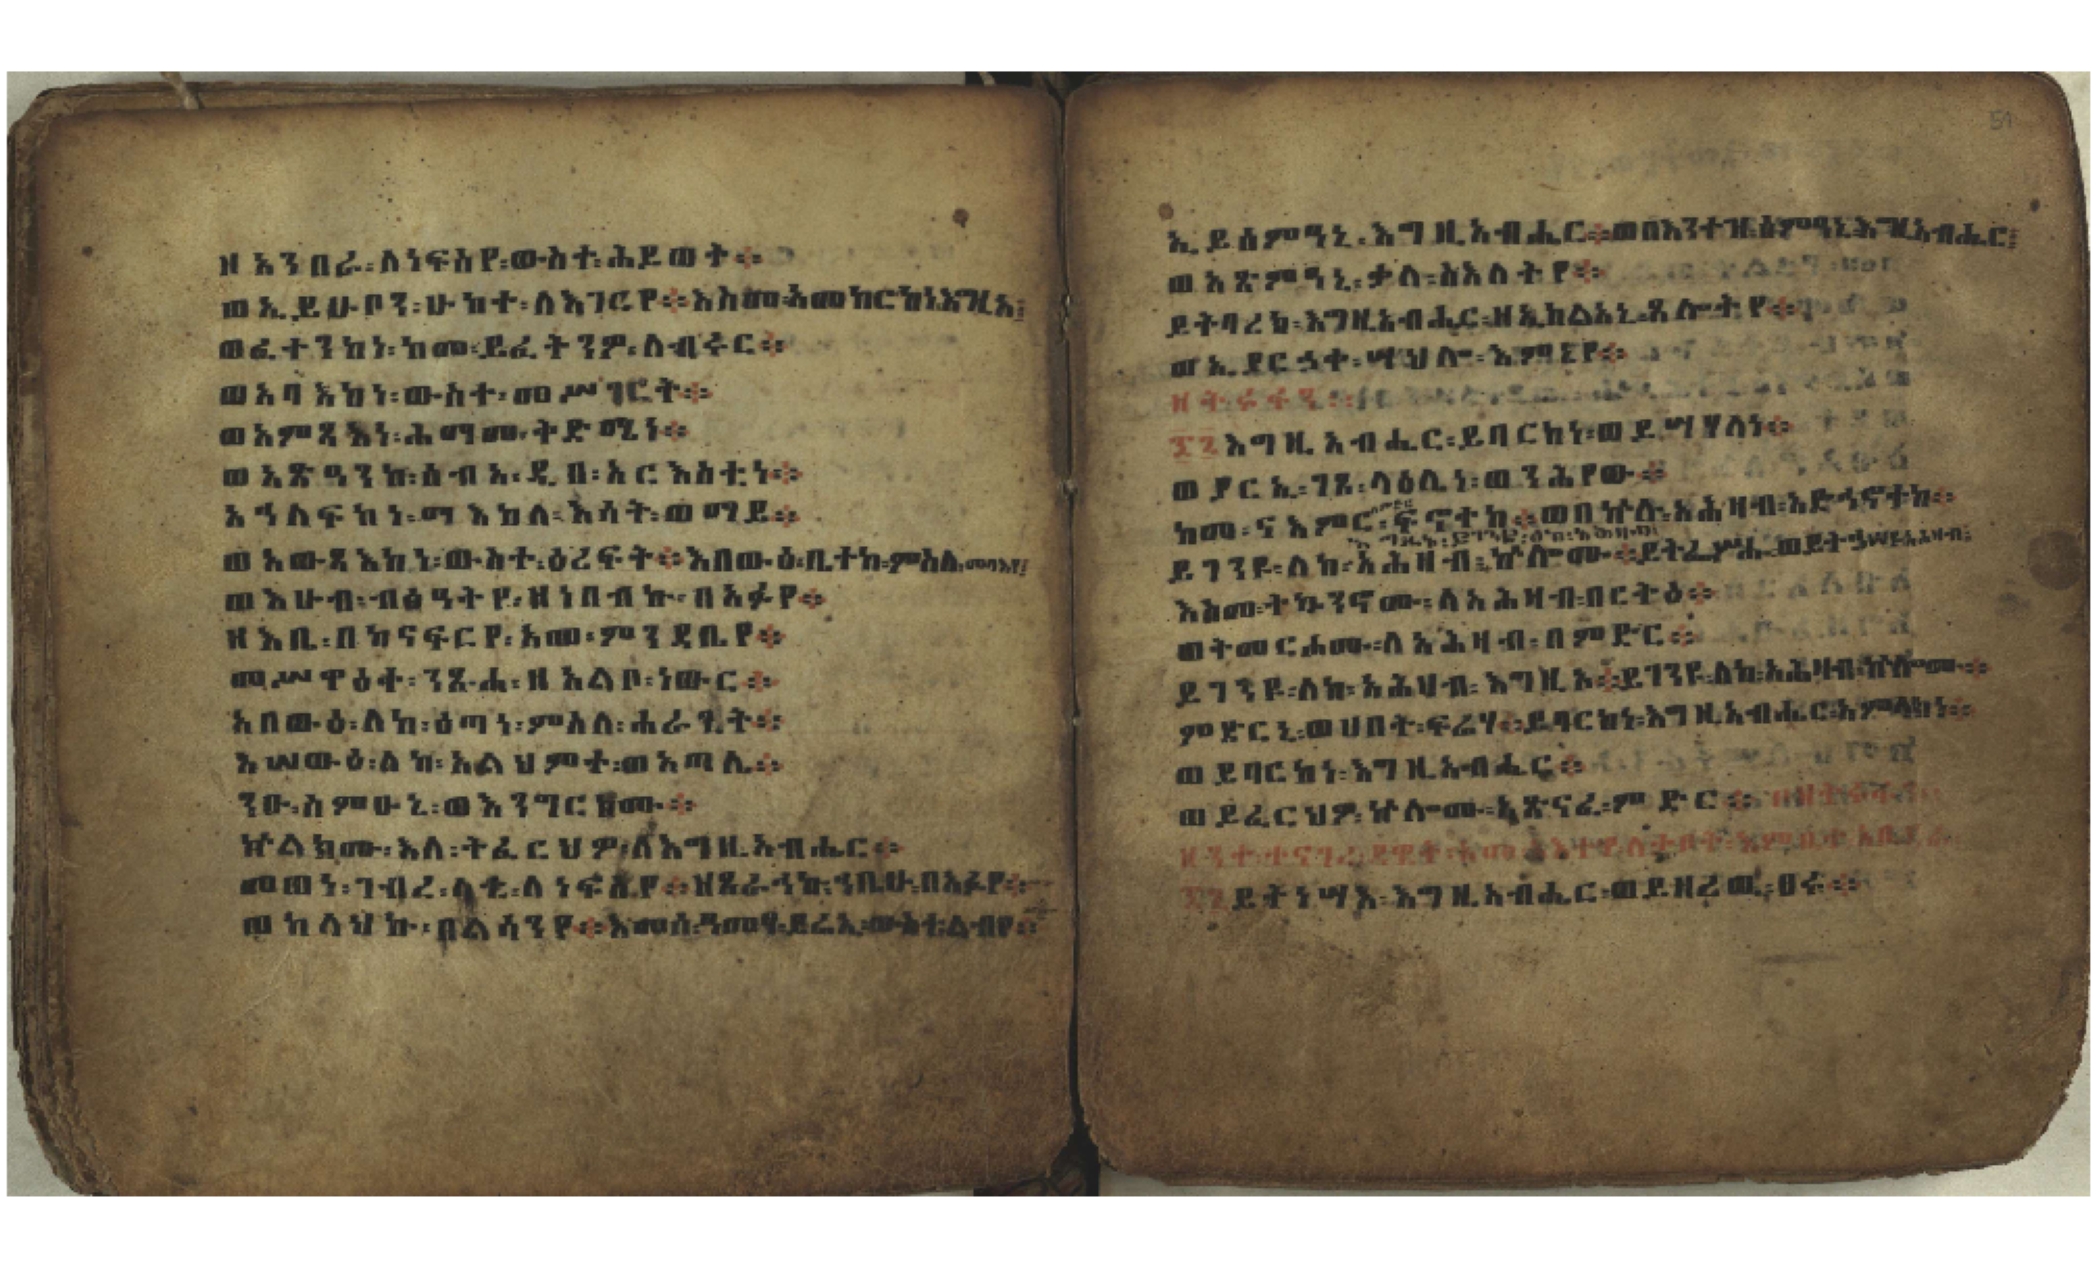 ዘአንበራ፡ለነፍስየ፡ውስተ፡ሕይወት።
ወኢይሁቦን፡ሁከተ፡ለእገርየ።እስመ፡አመከርከነ፡እግዚኦ፡
ወፈተንከነ፡ከመ፡ይፈትንዎ፡ለብሩር።
ወአባእከነ፡ውስተ፡መሥገርት።
ወአምጻእከ፡ሕማመ፡ትድሜነ።
ወአጽዓንከ፡ሰብአ፡ዲበ፡አርእስቲነ።
አኅለፍከነ፡ማእከለ፡እሳት፡ወማይ።
ወአውጻእከነ፡ውስተ፡ዕረፍት።እበውዕ፡ቤተከ፡ምስለ፡መባእየ፡
ወእሁብ፡ብፅዓትየ፡ዘነበብኩ፡በአፉየ።
ዘእቤ፡በከናፍርየ፡አመ፡ምንዳቤየ።
መሥዋዕተ፡ንጹሐ፡ዘአልቦ፡ነውር።
አበውዕ፡ለከ፡ዕጣነ፡ምስለ፡ሐራጊት።
እሠውዕ፡ለከ፡አልህምተ፡ወአጣሊ።
ንዑ፡ስምዑኒ፡ወእንግርክሙ።
ኵልክሙ፡እለ፡ትፈርህዎ፡ለእግዚአብሔር።
መጠነ፡ገብረ፡ሊቲ፡ለነፍስየ።ዘጸራኅኩ፡ኀቤሁ፡በአፉየ።
ወከላህኩ፡በልሳንየ።እመሰ፡ዓመፃ፡ይሬኢ፡ውስተ፡ልብየ።
ኢይሰምዓኒ፡እግዚአብሔር።ወበእንተዝ፡ሰምዓኒ፡እግዚአብሔር፡
ወአጽምዓኒ፡ቃለ፡ስእለትየ።
ይትባረክ፡እግዚአብሔር፡ዘኢከልአኒ፡ጸሎትየ።
ወኢያርኃቀ፡ሣህሎ፡እምኔየ።
፷፮እግዚአብሔር፡ይባርከነ፡ወይሣሃለነ።
ወያርኢ፡ገጾ፡ላዕሌነ፡ወንሕየው።
ከመ፡ናእምር፡ፍኖተከ።ወበኵሉ፡አሕዛብ፡አድኅኖተከ።
ይገንዩ፡ለከ፡አሕዛብ፡ኵሎሙ።ይትፌሥሑ፡ወይትኃሠዩ፡አሕዛብ፡
እስመ፡ትኴንኖሙ፡ለአሕዛብ፡በርትዕ።
ወትመርሖሙ፡ለአሕዛብ፡በምድር።
ይገንዩ፡ለከ፡አሕዛብ፡እግዚኦ።ይገንዩ፡ለከ፡አሕዛብ፡ኵሎሙ።
ምድርኒ፡ወሀበት፡ፍሬሃ።ይባርከነ፡እግዚአብሔር፡አምላክነ።
ወይባርከነ፡እግዚአብሔር።
ወይፈርህዎ፡ኵሎሙ፡አጽናፈ፡ምድር።
፷፯ይትነሣእ፡እግዚአብሔር፡ወይዘረዉ፡ፀሩ።